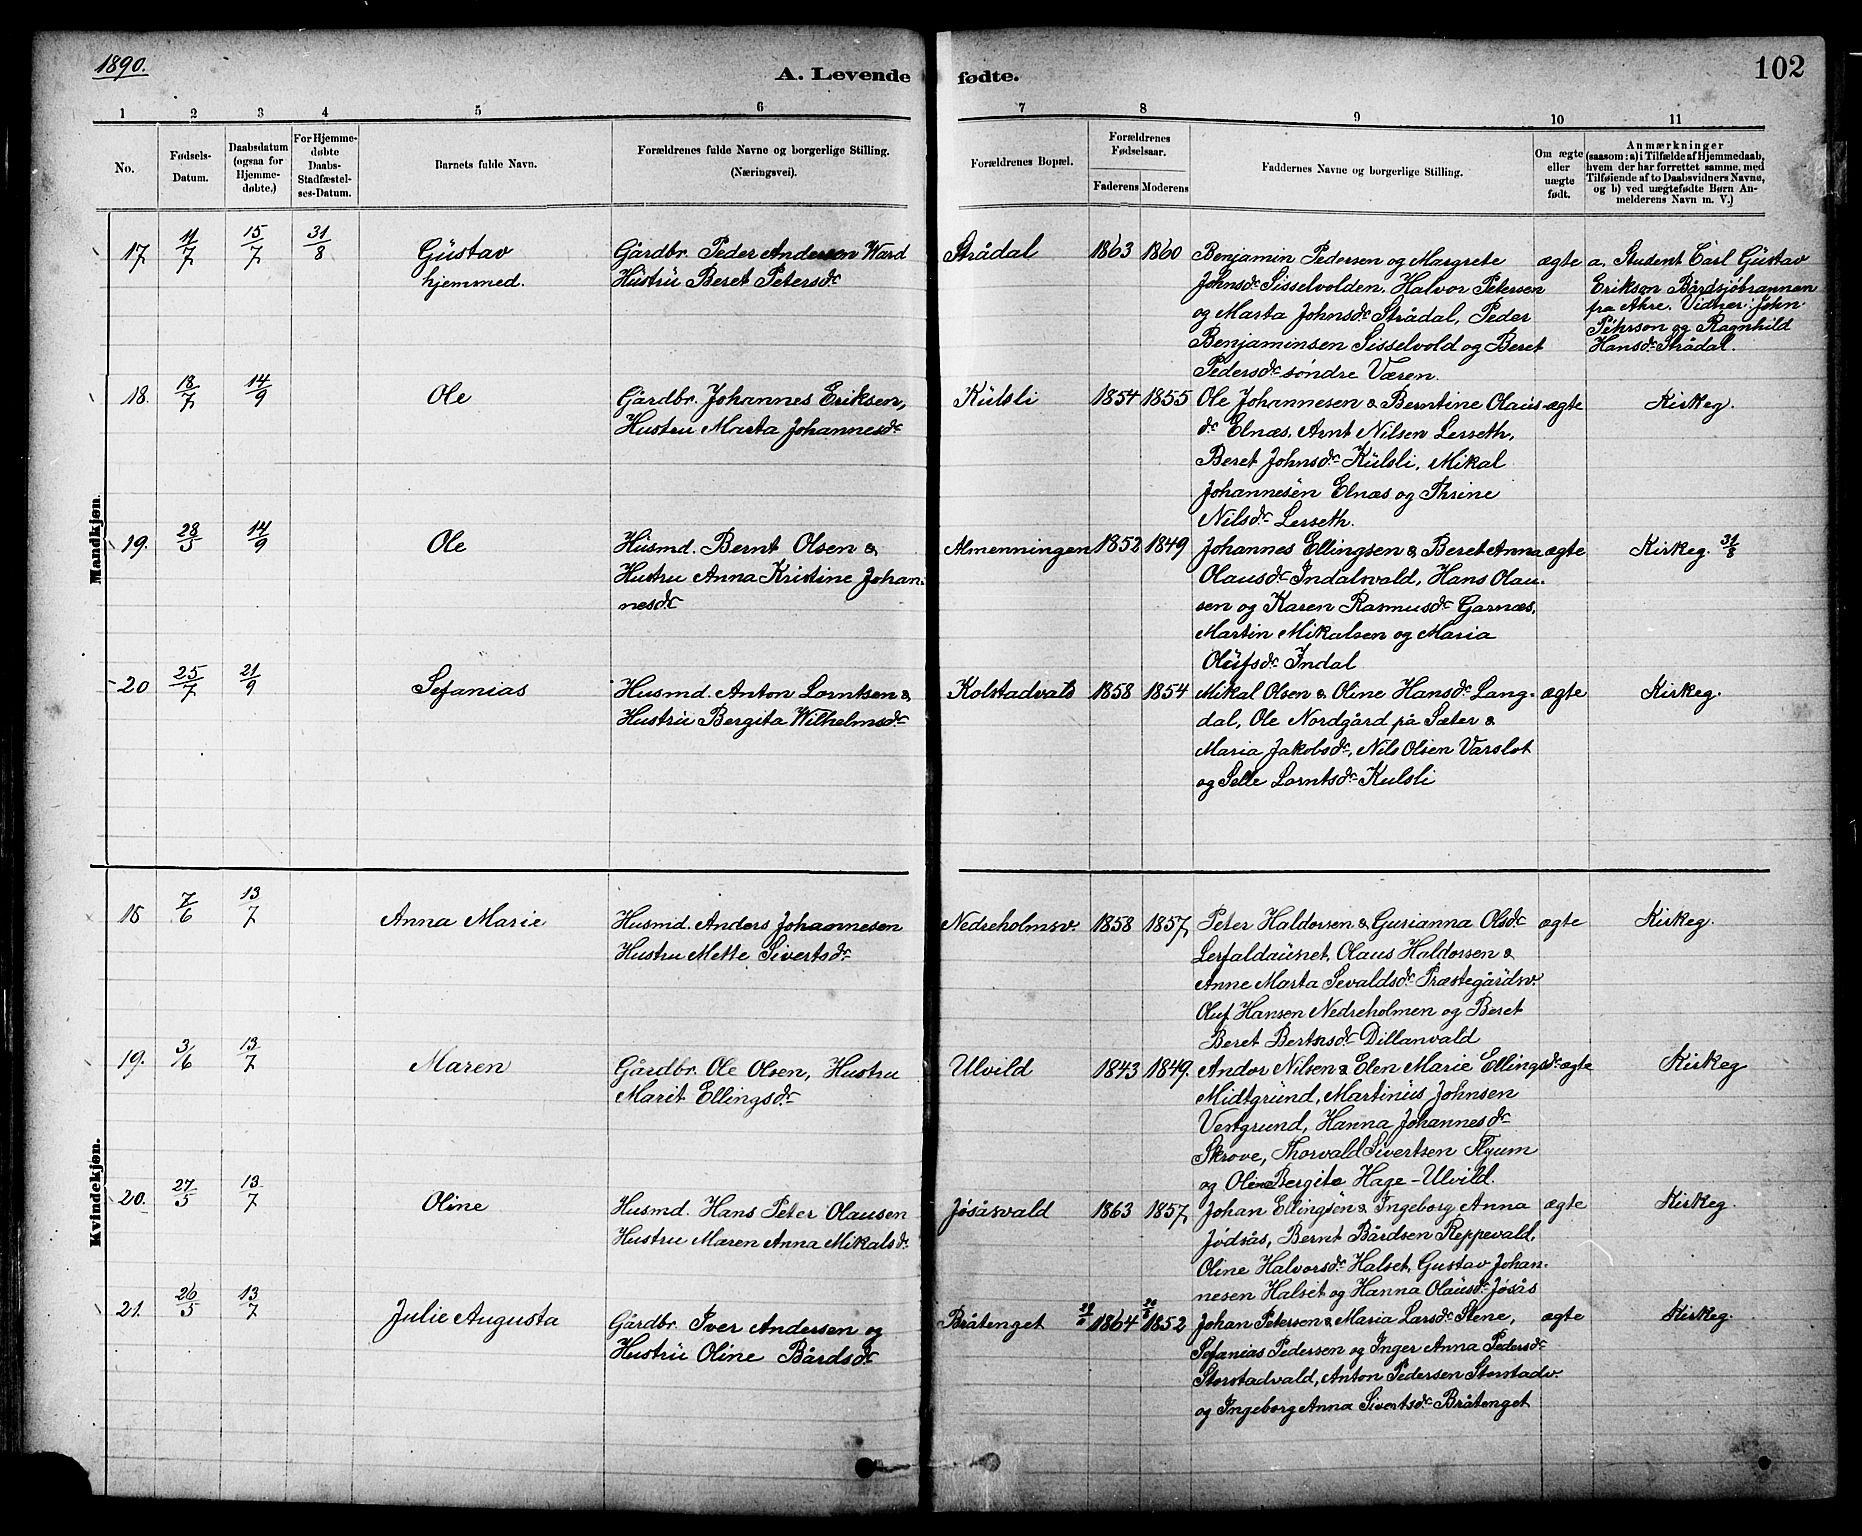 1890.
A. Levende fødte.
102
1 2 3 4 5 6 7 8 9 10 11
No.
Fødsels-
Datum.
Daabsdatum
(ogsaa for
Hjemme-
døbte.)
For Hjemme-
døbte
Daabs-
Stadfæstel-
ses-Datum.
Barnets fulde Navn.
Forældrenes fulde Navne og borgerlige Stilling.
(Næringsvei).
Forældrenes Bopæl.
Forældrenes
Fødselsaar.
Faderens Moderens
Faddernes Navne og borgerlige Stilling.
Om ægte
eller
uægte
født.
Anmærkninger
(saasom: a) i Tilfælde af Hjemmedaab,
hvem der har forrettet samme, med
Tilføiende af to Daabsvidners Navne,
og b) ved uægtefødte Børn An-
melderens Navn m. V.)
Mandkjøn.
17 11/7 15/7 31/8
Gustav
hjemmed.
Gårdbr. Peder Anderson Ward
Hustru Beret Petersdr
Strådal 1863 1860
Benjamin Pedersen og Margrete
Johnsdr Sisselvolden. Halvor Petersen
og Marta Johnsdr Strådal, Peder
Benjaminsen Sisselvold og Beret
Pedersdr søndre Væren.
ægte
a. Student Carl Gustav
Erikson Bårdsjöbrannen
fra Åhre. Vidner: John
Pehrson og Ragnhild
Hansdr Strådal.
18. 18/7 14/9
Ole
Gårdbr. Johannes Eriksen,
Hustru Marta Johannesdr
Kulsli 1854 1855
Ole Johannesen & Berntine Olaus-
dr Elnæs, Arnt Nilsen Lerseth,
Beret Johnsdr Kulsli, Mikal
Johannesen Elnæs og Thrine
Nilsdr Lerseth.
ægte
Kirkeg.
19. 28/5 14/9
Ole
Husmd. Bernt Olsen &
Hustru Anna Kristine Johan-
nesdr
Almenningen 1852 1849
Johannes Ellingsen & Beret Anna
Olausdr Indalsvald, Hans Olau-
sen og Karen Rasmusdr Garnæs,
Martin Mikalsen og Maria
Olufsdr Indal
ægte
Kirkeg. 31/8
20 25/7 21/9
Sefanias
Husmd. Anton Lorntsen &
Hustru Bergita Wilhelmsdr
Kolstadvals 1858 1854
Mikal Olsen & Oline Hansdr Lang-
dal, Ole Nordgård på Sæter &
Maria Jakobsdr, Nils Olsen Varslot
og Selle Lorntsdr Kulsli
ægte
Kirkeg.
Kvindekjøn.
18 7/6 13/7
Anna Marie
Husmd. Anders Johannesen
Hustru Mette Sivertsdr
Nedreholmsv. 1858 1857
Peter Haldorsen & Gurianna Olsdr
Lerfaldaunet, Olaus Haldorsen &
Anne Marta Sevaldsdr Præstegårdsv.
Oluf Hansen Nedreholmen og Beret
Beret Bertsdr Dillanvald
ægte
Kirkeg.
19. 3/6 13/7
Maren
Gårdbr. Ole Olsen, Hustru
Marit Ellingsdr
Ulvild 1843 1849.
Andor Nilsen & Elen Marie Ellingsdr
Midtgrund, Martinus Johnsen
Vestgrund, Hanna Johannesdr
Skrove, Thorvald Sivertsen Flyum
og Oline Bergite Hage-Ulvild.
ægte
Kirkeg
20. 27/5 13/7
Oline
Husmd. Hans Peter Olausen
Hustru Maren Anna Mikalsdr
Jøsåsvald 1863 1857
Johan Ellingsen & Ingeborg Anna
Jødsås, Bernt Bårdsen Reppevald,
Oline Halvorsdr Halset, Gustav Johan-
nesen Halset og Hanna Olausdr Jøsås
ægte
Kirkeg.
21. 26/5 13/7
Julie Augusta
Gårdbr. Iver Andersen og
Hustru Oline Bårdsdr
Bråtenget 1864 1852
Johan Petersen & Maria Larsdr Stene,
Sefanias Pedersen og Inger Anna Pedersdr
Storstadvald, Anton Pedersen Storstadv.
og Ingeborg Anna Sivertsdr Bråtenget
ægte
Kirkeg.